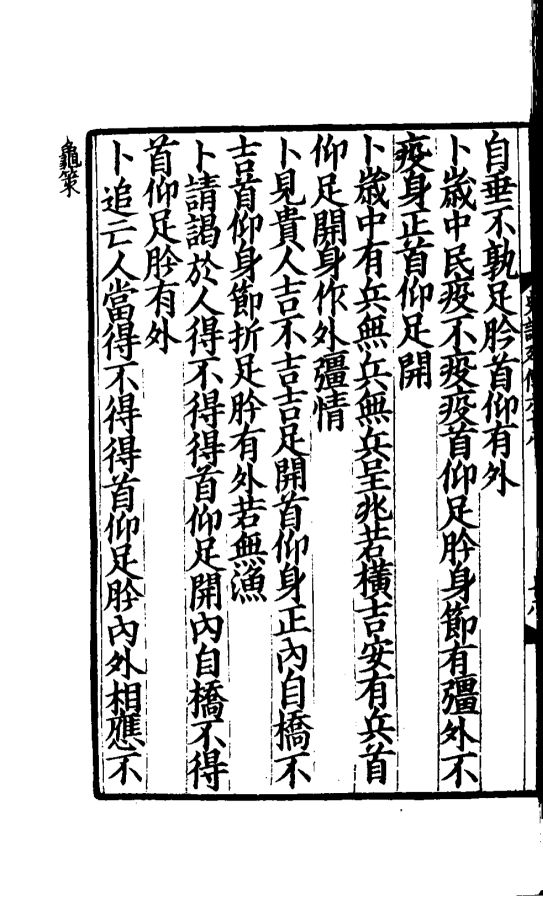 自垂不孰足肣首仰有外
卜歲中民疫不疫疫首仰足肣身節有彊外不
疫身正首仰足開
卜歲中有兵無兵無兵呈兆若橫吉安有兵首
仰足開身作外彊情
卜見貴人吉不吉吉足開首仰身正內自橋不
吉首仰身節折足肣有外若無漁
卜請謁於人得不得得首仰足開內自橋不得
首仰足肣有外
卜追亡人當得不得得首仰足肣內外相應不
龜策